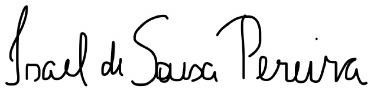 Israel de Sousa Pereira